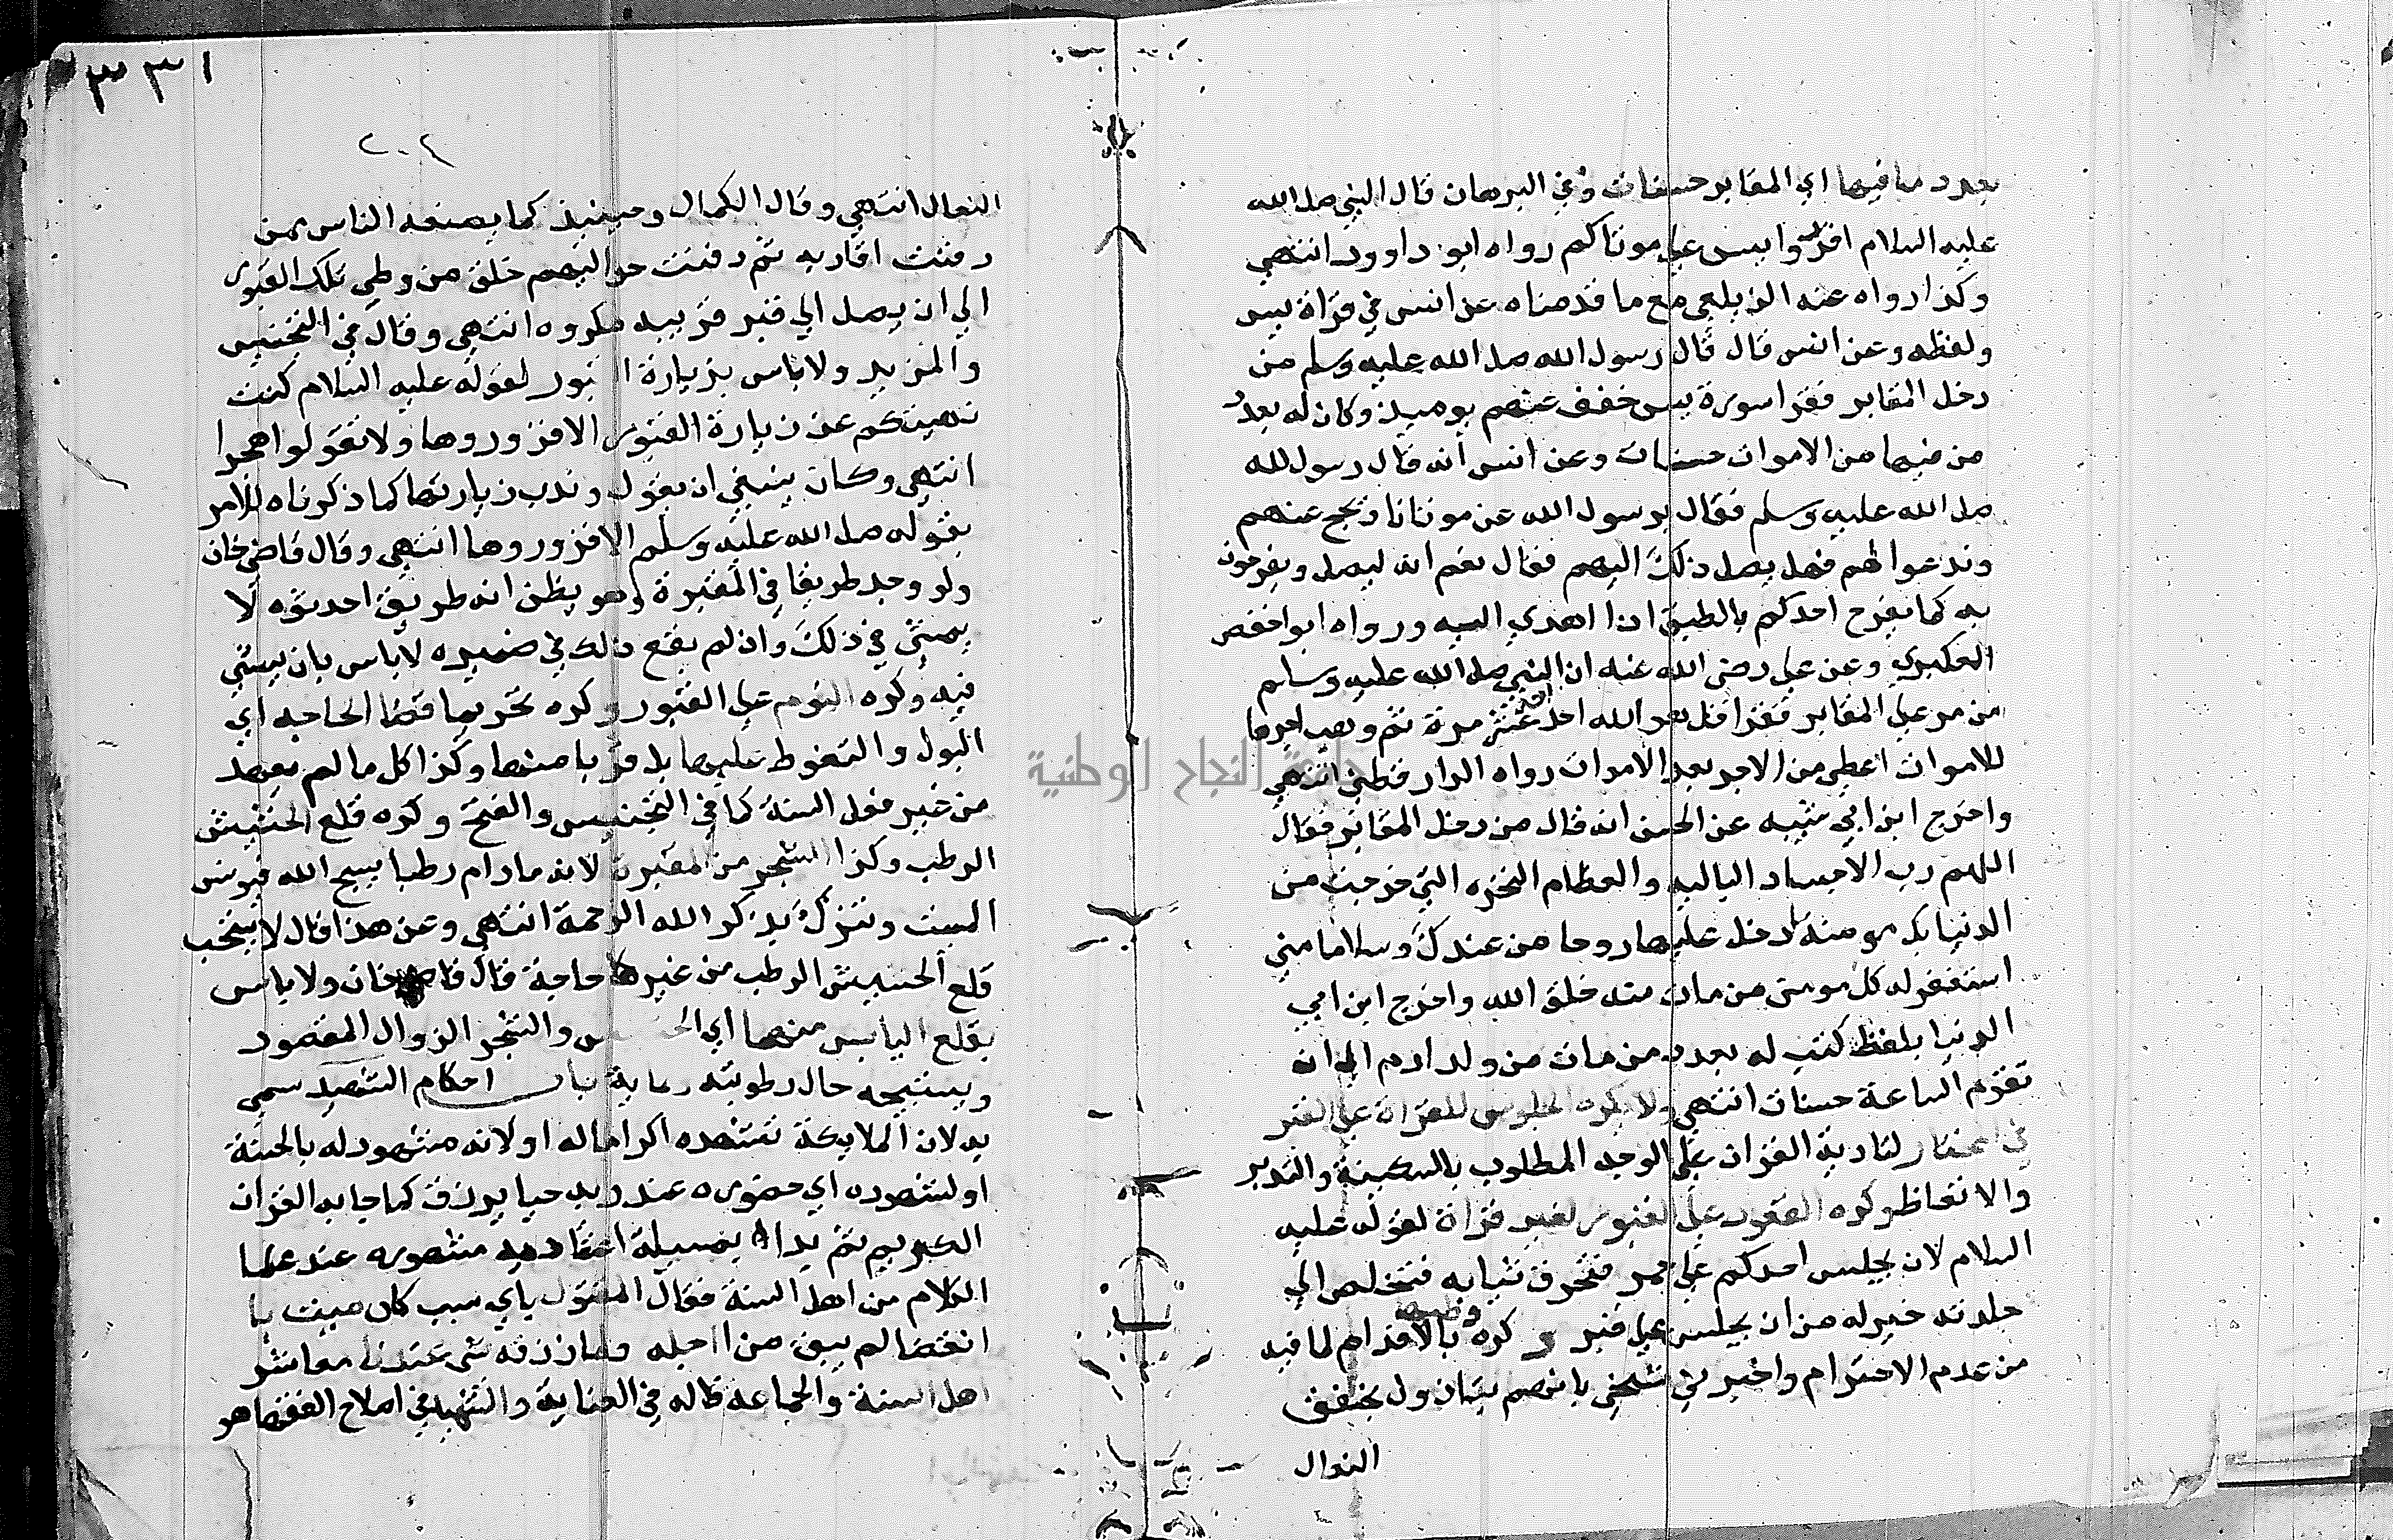 بعدد ما فيها اي المقابر حسنات وفي البرهان قال النبي صلى الله
عليه السلام اقروا يس على موتاكم رواه ابو داوود انتهي
وكذا رواه عنه الزيلعي مع ما قدمناه عن انس في قراة يس
ولفظه وعن انس قال قال رسول الله صلى الله عليه وسلم من
دخل المقابر فقرا سورة يس خفف عنهم يوميذ وكان له بعدد
من فيها من الاموات حسنات وعن انس انه قال رسول الله
صلى الله عليه وسلم فقال يرسول الله عن موتانا ونحج عنهم
وندعوا لهم فهل يصل ذلك اليهم فقال نعم انه ليصل ويفرحون
به كما يفرح احدكم بالطبق اذا اهدي اليه ورواه ابو احفص
العكبري وعن علي رضى الله عنه ان النبي صلى الله عليه وسلم
من مر على المقابر فقرا قل هو الله احد عشر مرة ثم وهب اجرها
للاموات اعطي من الاجر بعدد الاموات رواه الدار قطني انتهي
واخرج ابن ابي شيبه عن الحسن انه قال من دخل المقابر فقال
اللهم رب الاجساد الباليه والعظام النخره التي خرجت من
الدنيا بك مومنة ادخل عليها روحا من عندك وسلاما مني
استغفر له كل مومن من مات منه خلق الله واخرج ابن ابي
الدنيا بلفظ كتب له بعدد من مات من ولد ادم الي ان
تقوم الساعة حسنات انتهي ولا يكره الجلوس للقراة على القبر
في المختار لتادية القران على الوجه المطلوب بالسكينة والتدبر
والاتعاظ وكره القعود على القبور لغير قراة لقوله عليه
السلام لان يجلس احدكم على جمر فتحرق ثيابه فتخلص الي
جلدته خير له من ان يجلس على قبر وكره وطيها بالاقدام لما فيه
من عدم الاحترام واخبرني شيخي بانهم يتاذون بخفق
النعال
٣٣١
٢٠٤
النعال انتهي وقال الكمال وحينيذ كما يصنعه الناس ممن
دفنت اقاربه ثم دفنت حواليهم خلق من وطي تلك القبور
الي ان يصل الي قبر قريبه مكروه انتهي وقال في التجنيس
والمزيد ولا باس بزيارة القبور لقوله عليه السلام كنت
نهيتكم عن زيارة القبور الا فزوروها ولا تقولوا هجرا
انتهي وكان ينبغي ان يقول وندب زيارتها كما ذكرناه للامر
بقوله صلى الله عليه وسلم الا فزوروها انتهي وقال قاضي خان
ولو وجد طريقا في المقبرة وهو يظن انه طريق احدثوه لا
يمشي في ذلك وان لم يقع ذلك في ضميره لا باس بان يمشي
فيه وكره النوم على القبور وكره تحريما قضا الحاجه اي
البول والتغوط عليها بل قريبا منها وكذا كل ما لم يعهد
من غير فعل السنة كما في التجنيس والفتح وكره قلع الحشيش
الرطب وكذا الشجر من المقبرة لانه مادام رطبا يسبح الله فيونس
الميت وتنزل بذكر الله الرحمة انتهي وعن هذا قال لا يستحب
قلع الحشيش الرطب من غير حاجة قال قاضي خان ولا باس
بقلع اليابس منها اي الحشيش والشجر لزوال المقصود
احكام الشهيد سمي
به لان الملايكة تشهده اكراما له او لانه مشهود له بالجنة
او لشهوده اي حضوره عند ربه حيا يرزق كما جا به القران
الكريم ثم بدا بمسيلة اعتقاديه مشهوره عند علما
الكلام من اهل السنة فقال المقتول باي سبب كان ميت با
انقضا لم يبق من اجله ولا رزقه شي عندنا معاشر
اهل السنة والجماعه قاله في العناية والشهيد في اصلاح الفقها هو